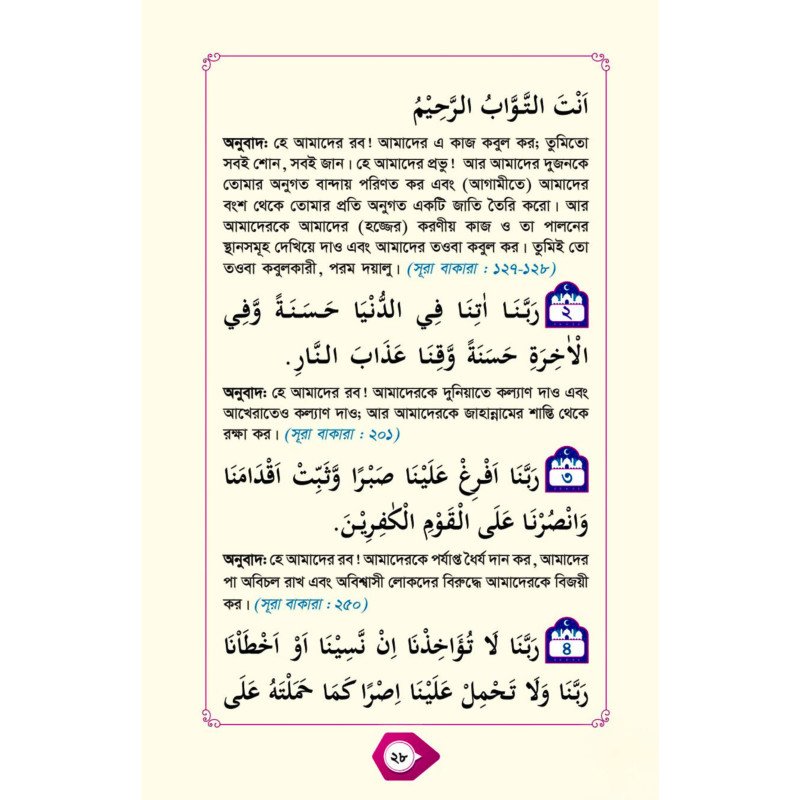 اَنْتَ التَّوَّابُ الرَّحِيْمُ
অনুবাদ: হে আমাদের রব! আমাদের এ কাজ কবুল কর; তুমিতো
সবই শোন, সবই জান। হে আমাদের প্রভু! আর আমাদের দুজনকে
তোমার অনুগত বান্দায় পরিণত কর এবং (আগামীতে) আমাদের
বংশ থেকে তোমার প্রতি অনুগত একটি জাতি তৈরি করো। আর
আমাদেরকে আমাদের (হজ্জের) করণীয় কাজ ও তা পালনের
স্থানসমূহ দেখিয়ে দাও এবং আমাদের তওবা কবুল কর। তুমিই তো
তওবা কবুলকারী, পরম দয়ালু। (সূরা বাকারা : ১২৭-১২৮)
২ رَبَّنَا اٰتِنَا فِي الدُّنْيَا حَسَنَةً وَّفِي
الْاٰخِرَةِ حَسَنَةً وَّقِنَا عَذَابَ النَّارِ.
অনুবাদ: হে আমাদের রব! আমাদেরকে দুনিয়াতে কল্যাণ দাও এবং
আখেরাতেও কল্যাণ দাও; আর আমাদেরকে জাহান্নামের শাস্তি থেকে
রক্ষা কর। (সূরা বাকারা : ২০১)
৩ رَبَّنَا اَفْرِغْ عَلَيْنَا صَبْرًا وَّثَبِّتْ اَقْدَامَنَا
وَانْصُرْنَا عَلَى الْقَوْمِ الْكٰفِرِيْنَ.
অনুবাদ: হে আমাদের রব! আমাদেরকে পর্যাপ্ত ধৈর্য দান কর, আমাদের
পা অবিচল রাখ এবং অবিশ্বাসী লোকদের বিরুদ্ধে আমাদেরকে বিজয়ী
কর। (সূরা বাকারা : ২৫০)
৪ رَبَّنَا لَا تُؤَاخِذْنَا اِنْ نَّسِيْنَا اَوْ اَخْطَاْنَا
رَبَّنَا وَلَا تَحْمِلْ عَلَيْنَا اِصْرًا كَمَا حَمَلْتَهٗ عَلَى
২৮